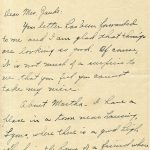 Dear Mrs. Sands.
Your letter has been forwarded
to me and I am glad that things
are looking so good. Of course,
it is not much of a surprise to
me that you feel you cannot
take my niece.
About Martha. I have a
place in a home near Lansing,
where there is a good high
of a friend where